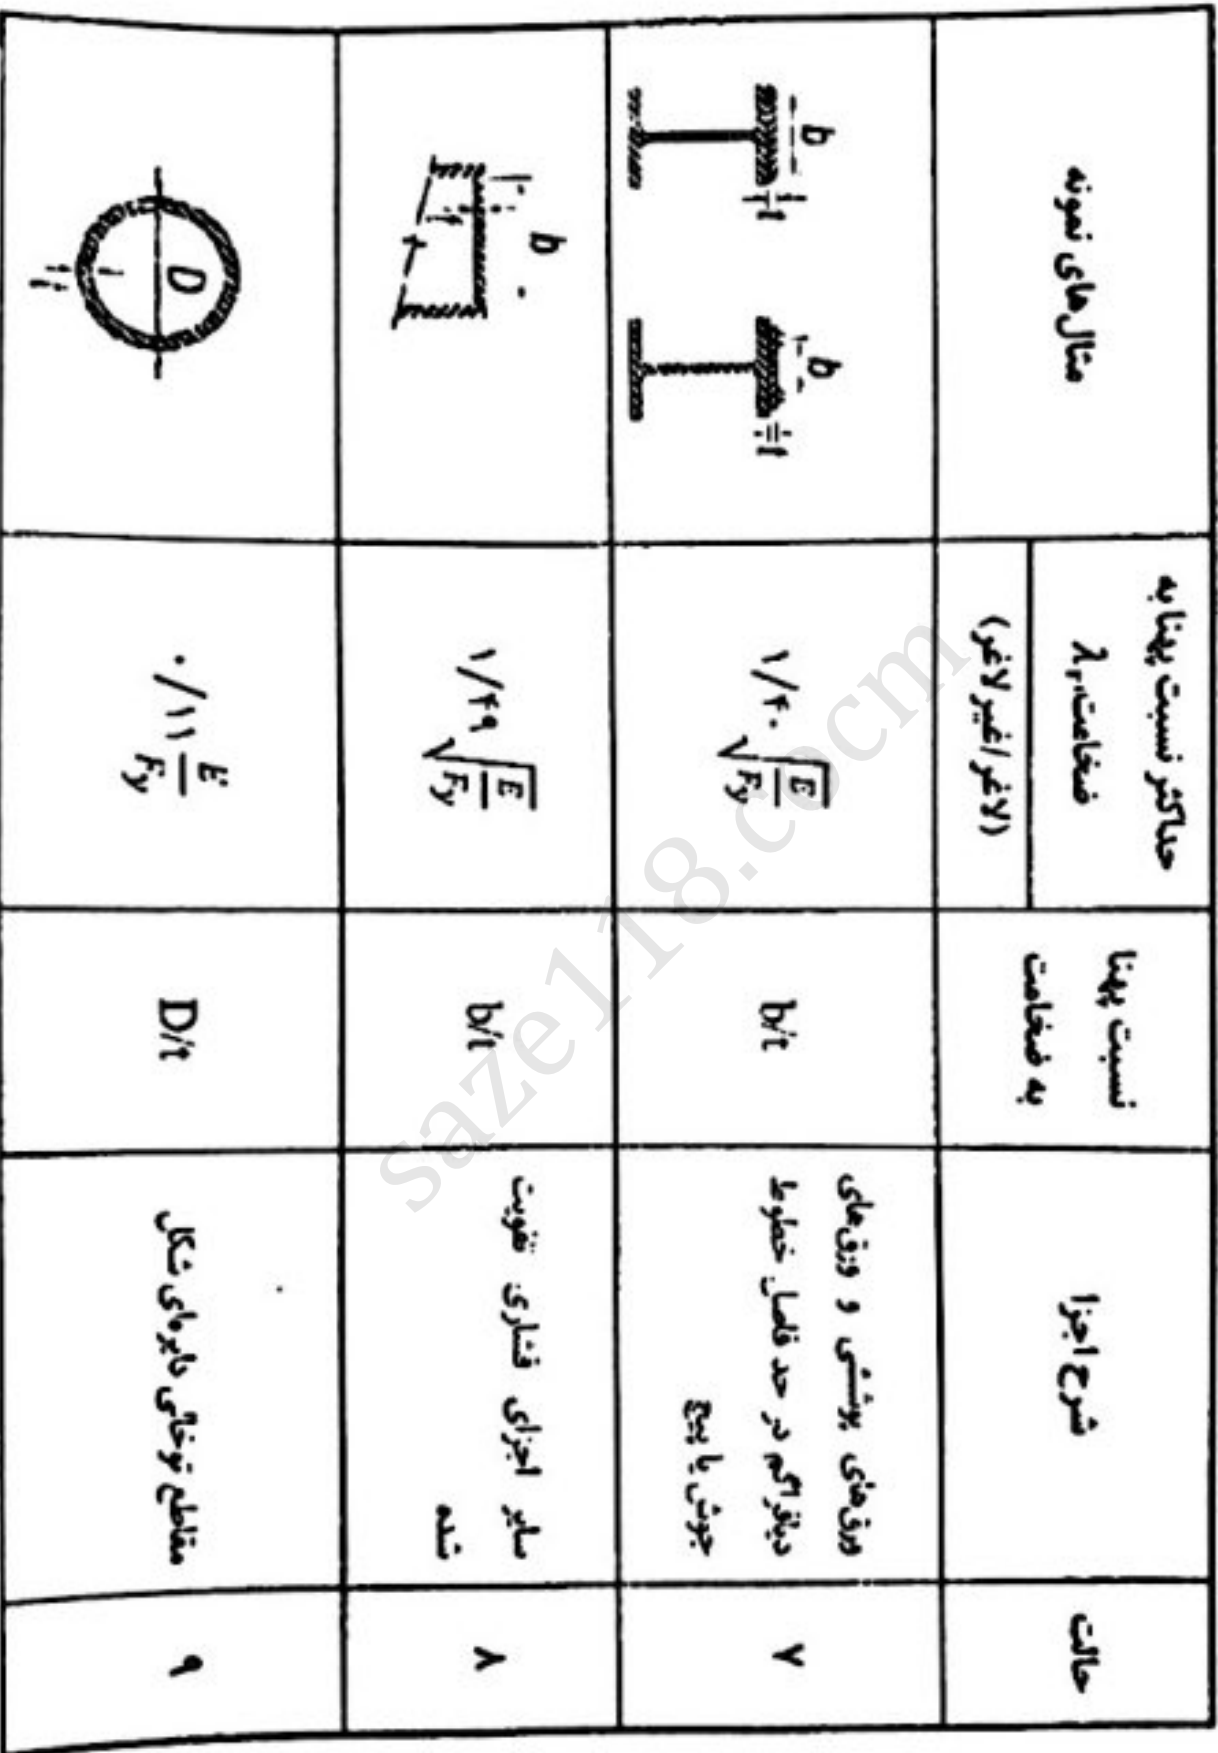 حالت
شرح اجزا
نسبت پهنا
به ضخامت
حداکثر نسبت پهنا به
ضخامت، λr
(لاغر/غیر لاغر)
مثال‌های نمونه
۷
ورق‌های پوششی و ورق‌های
دیافراگم در حد فاصل خطوط
جوش یا پیچ
b/t
۱/۴۰ √(E/Fy)
b
t
b
t
۸
سایر اجزای فشاری تقویت
شده
b/t
۱/۴۹ √(E/Fy)
b
t
۹
مقاطع توخالی دایره‌ای شکل
D/t
۰/۱۱ E/Fy
D
t
saze118.ocm